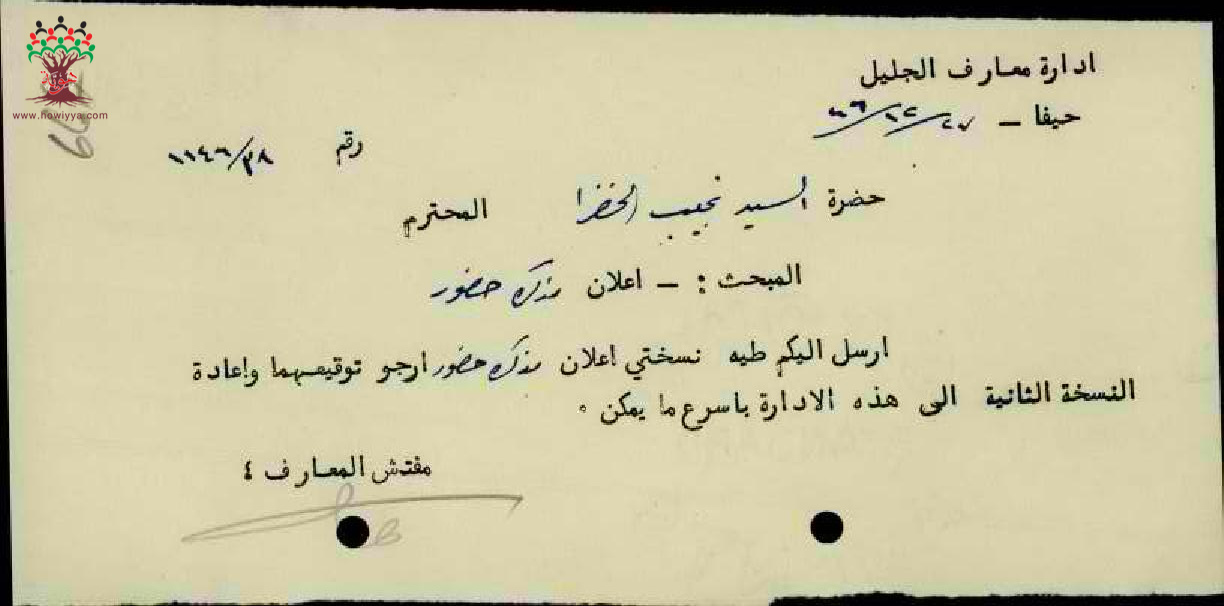 ادارة معارف الجليل
حيفا – ٢٧/١٢/٤٦
رقم ١١٤٦/٣٨
حضرة السيد نجيب الخضرا المحترم
المبحث : – اعلان مذكرة حضور
ارسل اليكم طيه نسختي اعلان مذكرة حضور ارجو توقيعهما واعادة
النسخة الثانية الى هذه الادارة باسرع ما يمكن .
مفتش المعارف ٤
هوية
www.howiyya.com